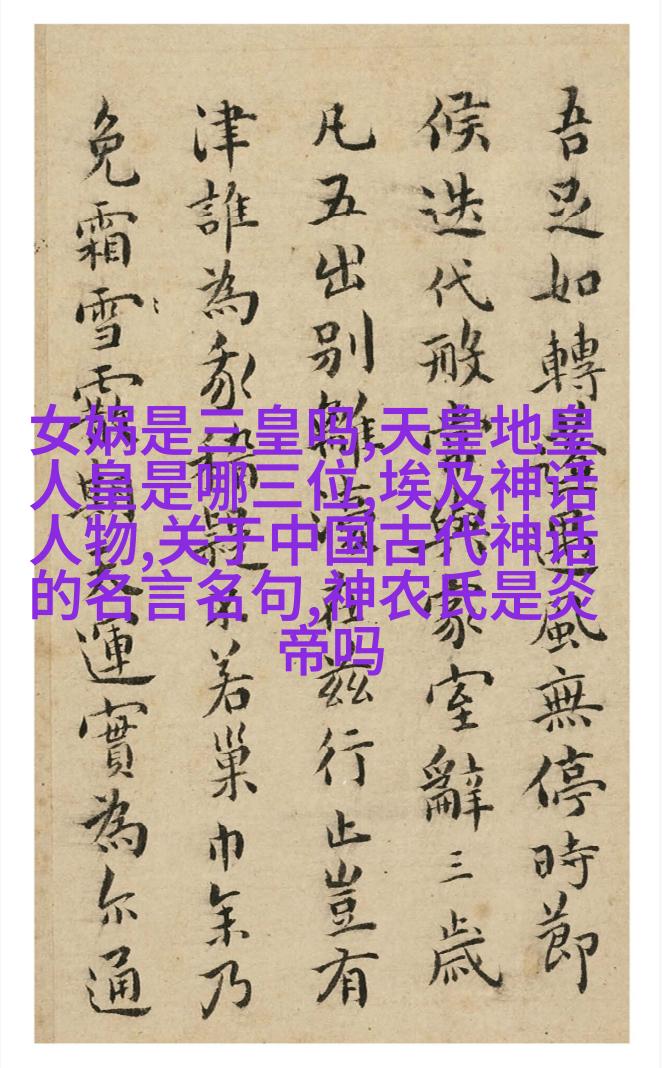 女娲是三皇吗,天皇地皇
人皇是哪三位,埃及神话
人物,关于中国古代神话
的名言名句,神农氏是炎
帝吗
吾足如轉風無停時節
候迭代家室辭三歲
凡五出别離兹行止豈有
津誰為若巢巾乃
免霜雪運實為尔通